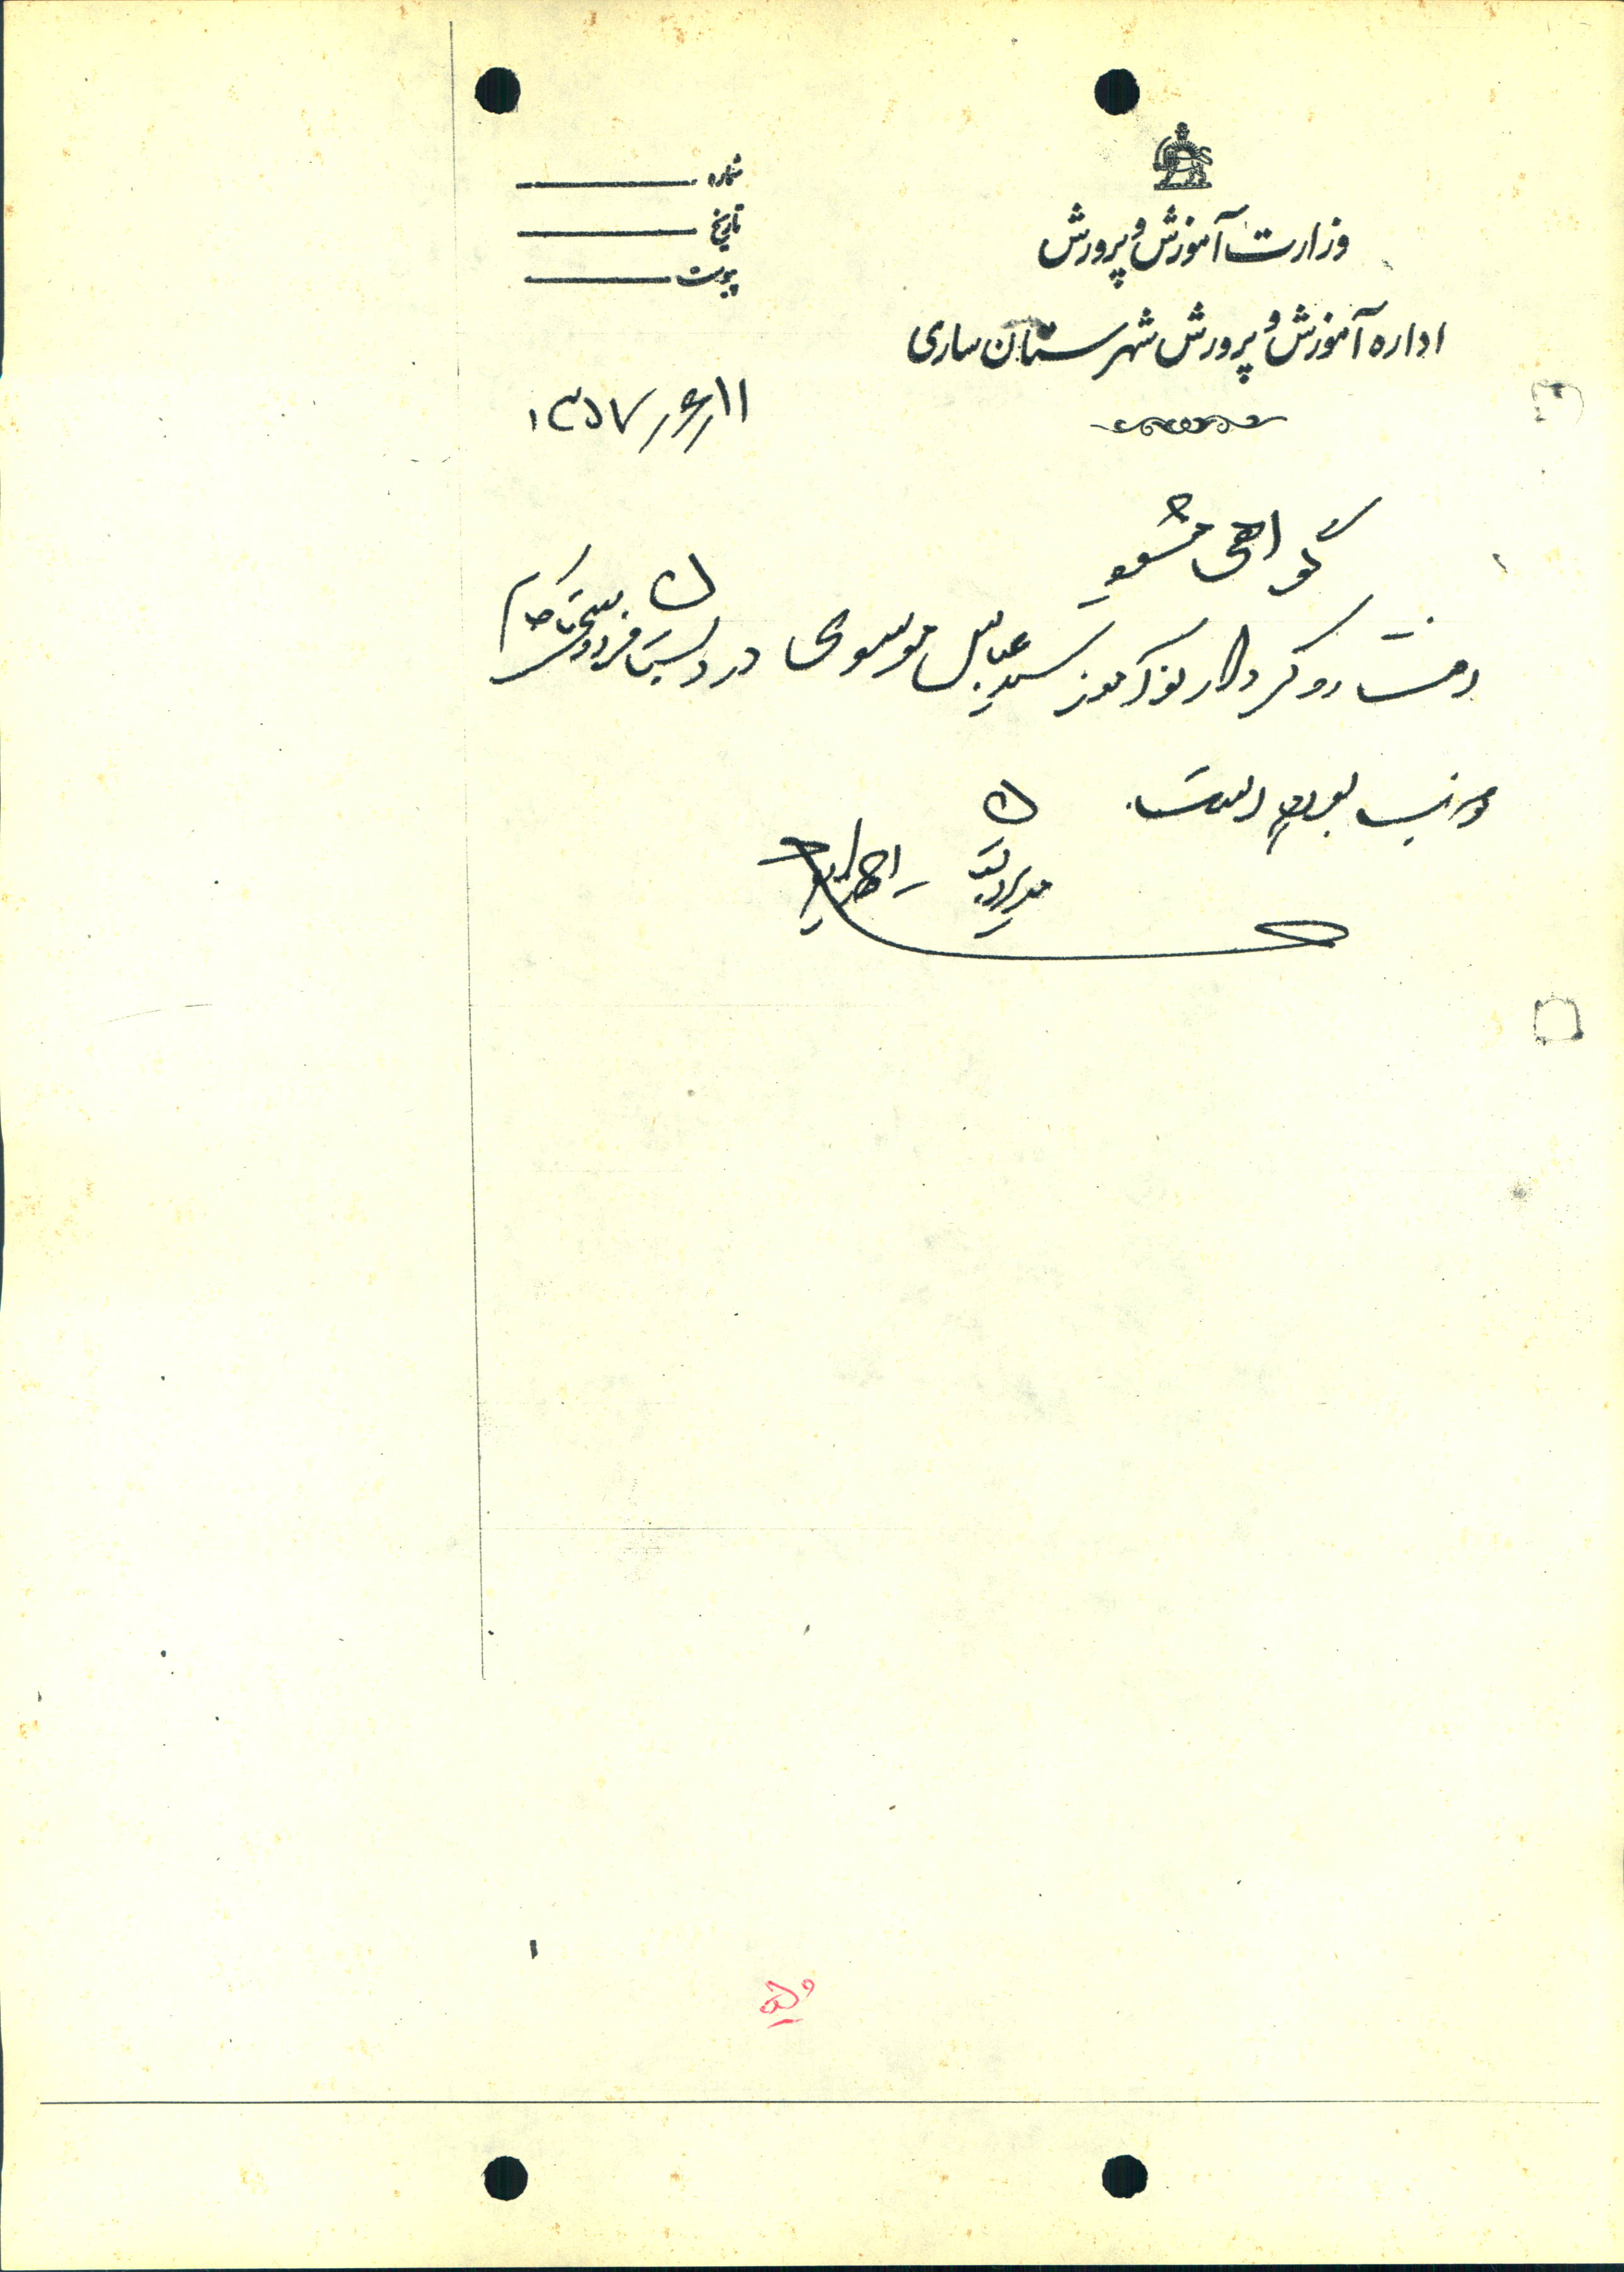 وزارت آموزش و پرورش
اداره آموزش و پرورش شهرستان ساری
شماره
تاریخ
پیوست
۱۳۵۷/۶/۱۱
گواهی میشود
رفتار و کردار نوآموز سید عباس موسوی در دبستان فردوسی
خوب بوده است.
مدیر دبستان